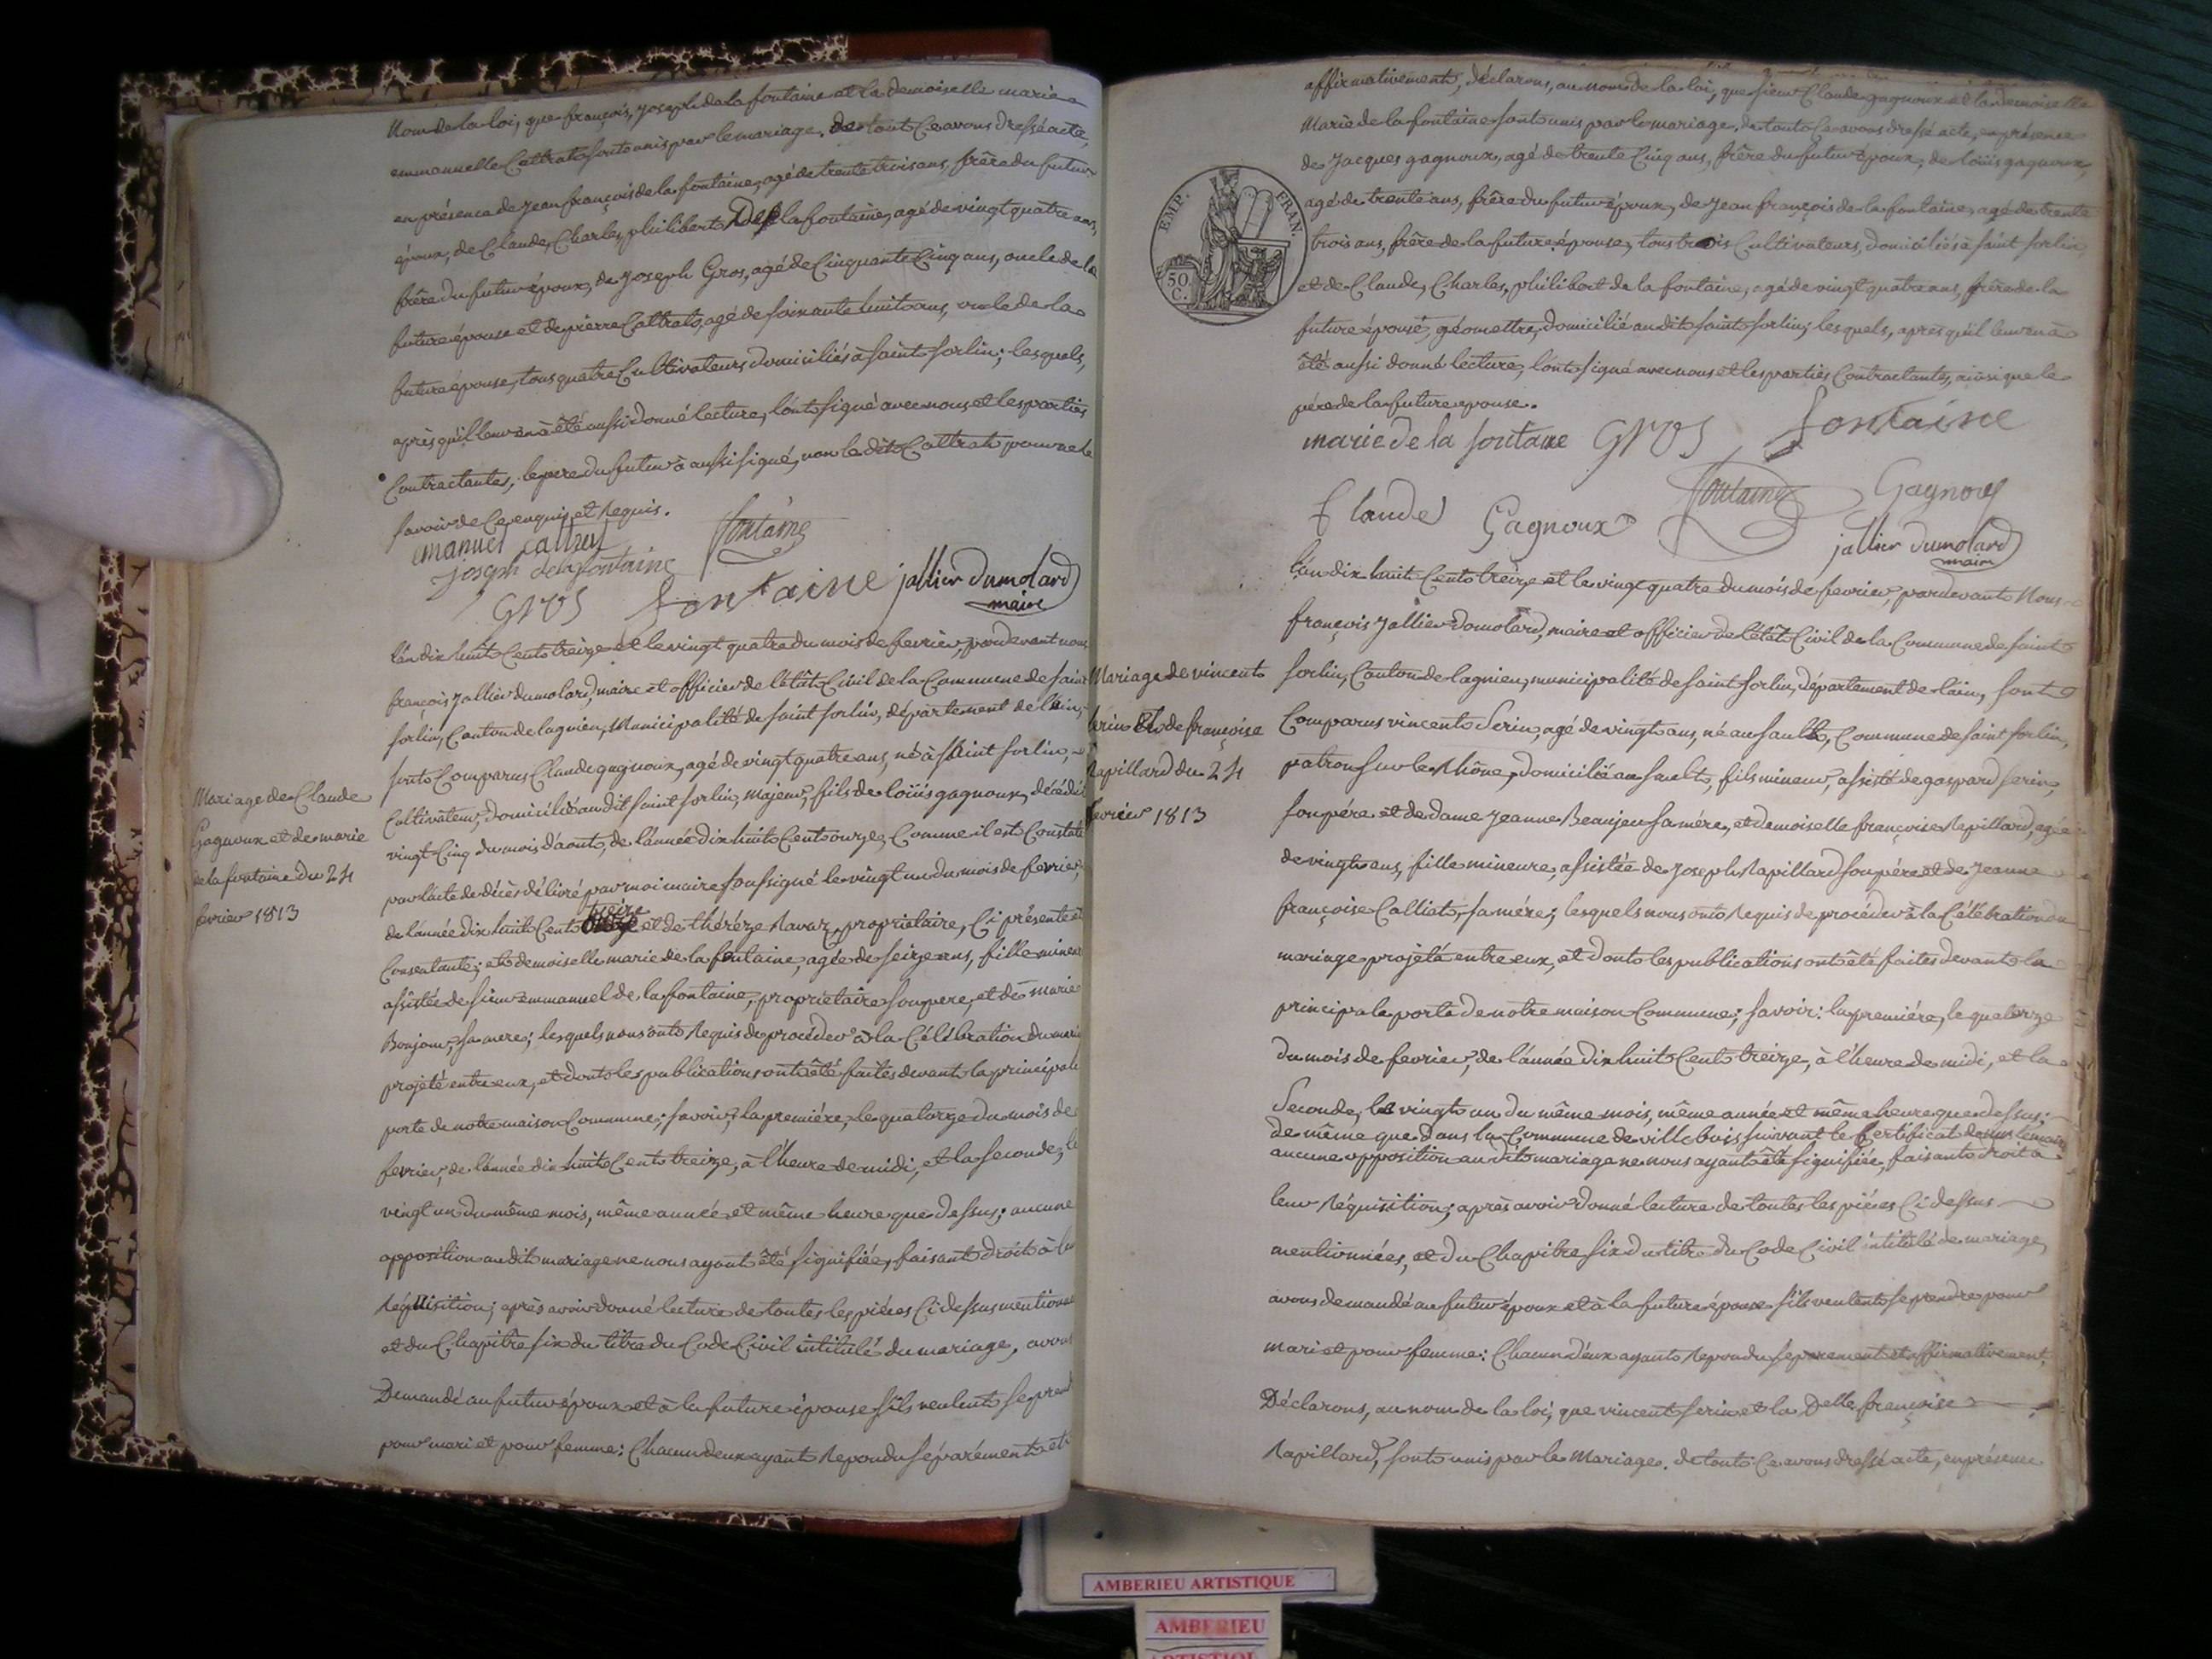 Nom de la loi, que françois, joseph de la fontaine et la demoiselle marie
emmanuelle Cattrat sont unis par le mariage. de tout Ce avons dressé acte,
en présence de jean françois de la fontaine, agé de trente trois ans, frère du futur
époux, de Claude, Charles, philibert De la fontaine, agé de vingt quatre ans,
frère du futur époux, de joseph Gros, agé de Cinquante Cinq ans, oncle de la
future épouse et de pierre Cattrat, agé de soixante huit ans, oncle de la
future épouse, tous quatre Cultivateurs domiciliés à saint sorlin; lesquels,
après qu'il leur en à été aussi donné lecture, l'ont signé avec nous et les parties
Contractantes, le pere du futur à aussi signé, non le dit Cattrat pour ne le
savoir de Ce enquis et Requis.
emanuel cattret
fontaine
joseph de la fontaine
Gros fontaine jallier dumolard
maire
Mariage de Claude
Gagnoux et de marie
de la fontaine du 24
fevrier 1813
L'an dix huit Cent treize et le vingt quatre du mois de fevrier, pardevant nous
françois jallier dumolard, maire et officier de l'état Civil de la Commune de saint
sorlin, Canton de lagnieu, Municipalité de saint sorlin, département de l'ain,
sont Comparus Claude gagnoux, agé de vingt quatre ans, né à saint sorlin,
Cultivateur, domicilié au dit saint sorlin, majeur, fils de loüis gagnoux, décédé
vingt Cinq du mois d'aout, de l'année dix huit Cent onze, Comme il est Constaté
par l'acte de décès délivré par moi maire soussigné le vingt un du mois de fevrier,
de l'année dix huit Cent treize et de thérèze Ravaz, propriétaire, Ci présente et
Consentante; et demoiselle marie de la fontaine, agée de seize ans, fille mineur
assistée de sieur emmanuel de la fontaine, propriétaire son pere, et de marie
Bonjour, sa mere; lesquels nous ont Requis de procéder à la Célébration du mari
projeté entre eux, et dont les publications ont été faites devant la principale
porte de notre maison Commune; savoir; la première, le quatorze du mois de
fevrier, de l'année dix huit Cent treize, à l'heure de midi, et la seconde, le
vingt un du même mois, même année et même heure que dessus; aucune
opposition au dit mariage ne nous ayant été signifiée, faisant droit à leur
Réquisition; après avoir donné lecture de toutes les pièces Ci dessus mentionné
et du Chapitre six du titre du Code Civil intitulé du mariage, avons
Demandé au futur époux et à la future épouse s'ils veulent se prend
pour mari et pour femme: Chacun d'eux ayant Repondu séparément et
affirmativement, déclarons, au nom de la loi, que sieur Claude gagnoux et la demoiselle
Marie de la fontaine sont unis par le mariage. de tout Ce avons dressé acte, en présence
de jacques gagnoux, agé de trente Cinq ans, frère du futur époux, de loüis gagnoux,
agé de trente ans, frère du futur époux, de jean françois de la fontaine, agé de trente
trois ans, frère de la future épouse, tous trois Cultivateurs, domiciliés à saint sorlin,
et de Claude, Charles, philibert de la fontaine, agé de vingt quatre ans, frère de la
future épouse, géomettre, domicilié au dit saint sorlin; lesquels, après qu'il leur en à
été aussi donné lecture, l'ont signé avec nous et les parties Contractantes, ainsi que le
père de la future epouse.
EMP. FRAN.
50
C.
marie de la fontaine Gros fontaine
Claude Gagnoux fontaine Gagnoux
jallier dumolard
maire
Mariage de vincent
serin Et de françoise
Rapillard du 24
fevrier 1813
L'an dix huit Cent treize et le vingt quatre du mois de fevrier, pardevant Nous
françois jallier domolard, maire et officier de l'état Civil de la Commune de saint
sorlin, Canton de lagnieu, municipalité de saint sorlin, département de l'ain, sont
Comparus vincent Serin, agé de vingt ans, né au sault, Commune de saint sorlin,
patron sur le Rhône, domicilié au sault, fils mineur, assisté de gaspard serin,
son père et de dame jeanne Beaujeu sa mére, et demoiselle françoise Rapillard, agée
de vingt ans, fille mineure, assistée de joseph Rapillard son père et de jeanne
françoise Calliat, sa mére; lesquels nous ont Requis de procéder à la Célébration du
mariage projeté entre eux, et dont les publications ont été faites devant la
principale porte de notre maison Commune; savoir: la première, le quatorze
du mois de fevrier, de l'année dix huit Cent treize, à l'heure de midi, et la
Seconde, le vingt un du même mois, même année et même heure que dessus;
de même que dans la Commune de villebois suivant le Certificat
aucune opposition au dit mariage ne nous ayant été signifiée, faisant droit à
leur Réquisition; après avoir donné lecture de toutes les pièces Ci dessus
mentionnées, et du Chapitre six du titre du Code Civil intitulé de mariage,
avons demandé au futur époux et à la future épouse s'ils veulent se prendre pour
mari et pour femme: Chacun d'eux ayant Repondu séparement et affirmativement,
Déclarons, au nom de la loi, que vincent serin et la Delle françoise
Rapillard, sont unis par le Mariage. de tout Ce avons dressé acte, en présence
AMBERIEU ARTISTIQUE
AMBERIEU
ARTISTIQUE